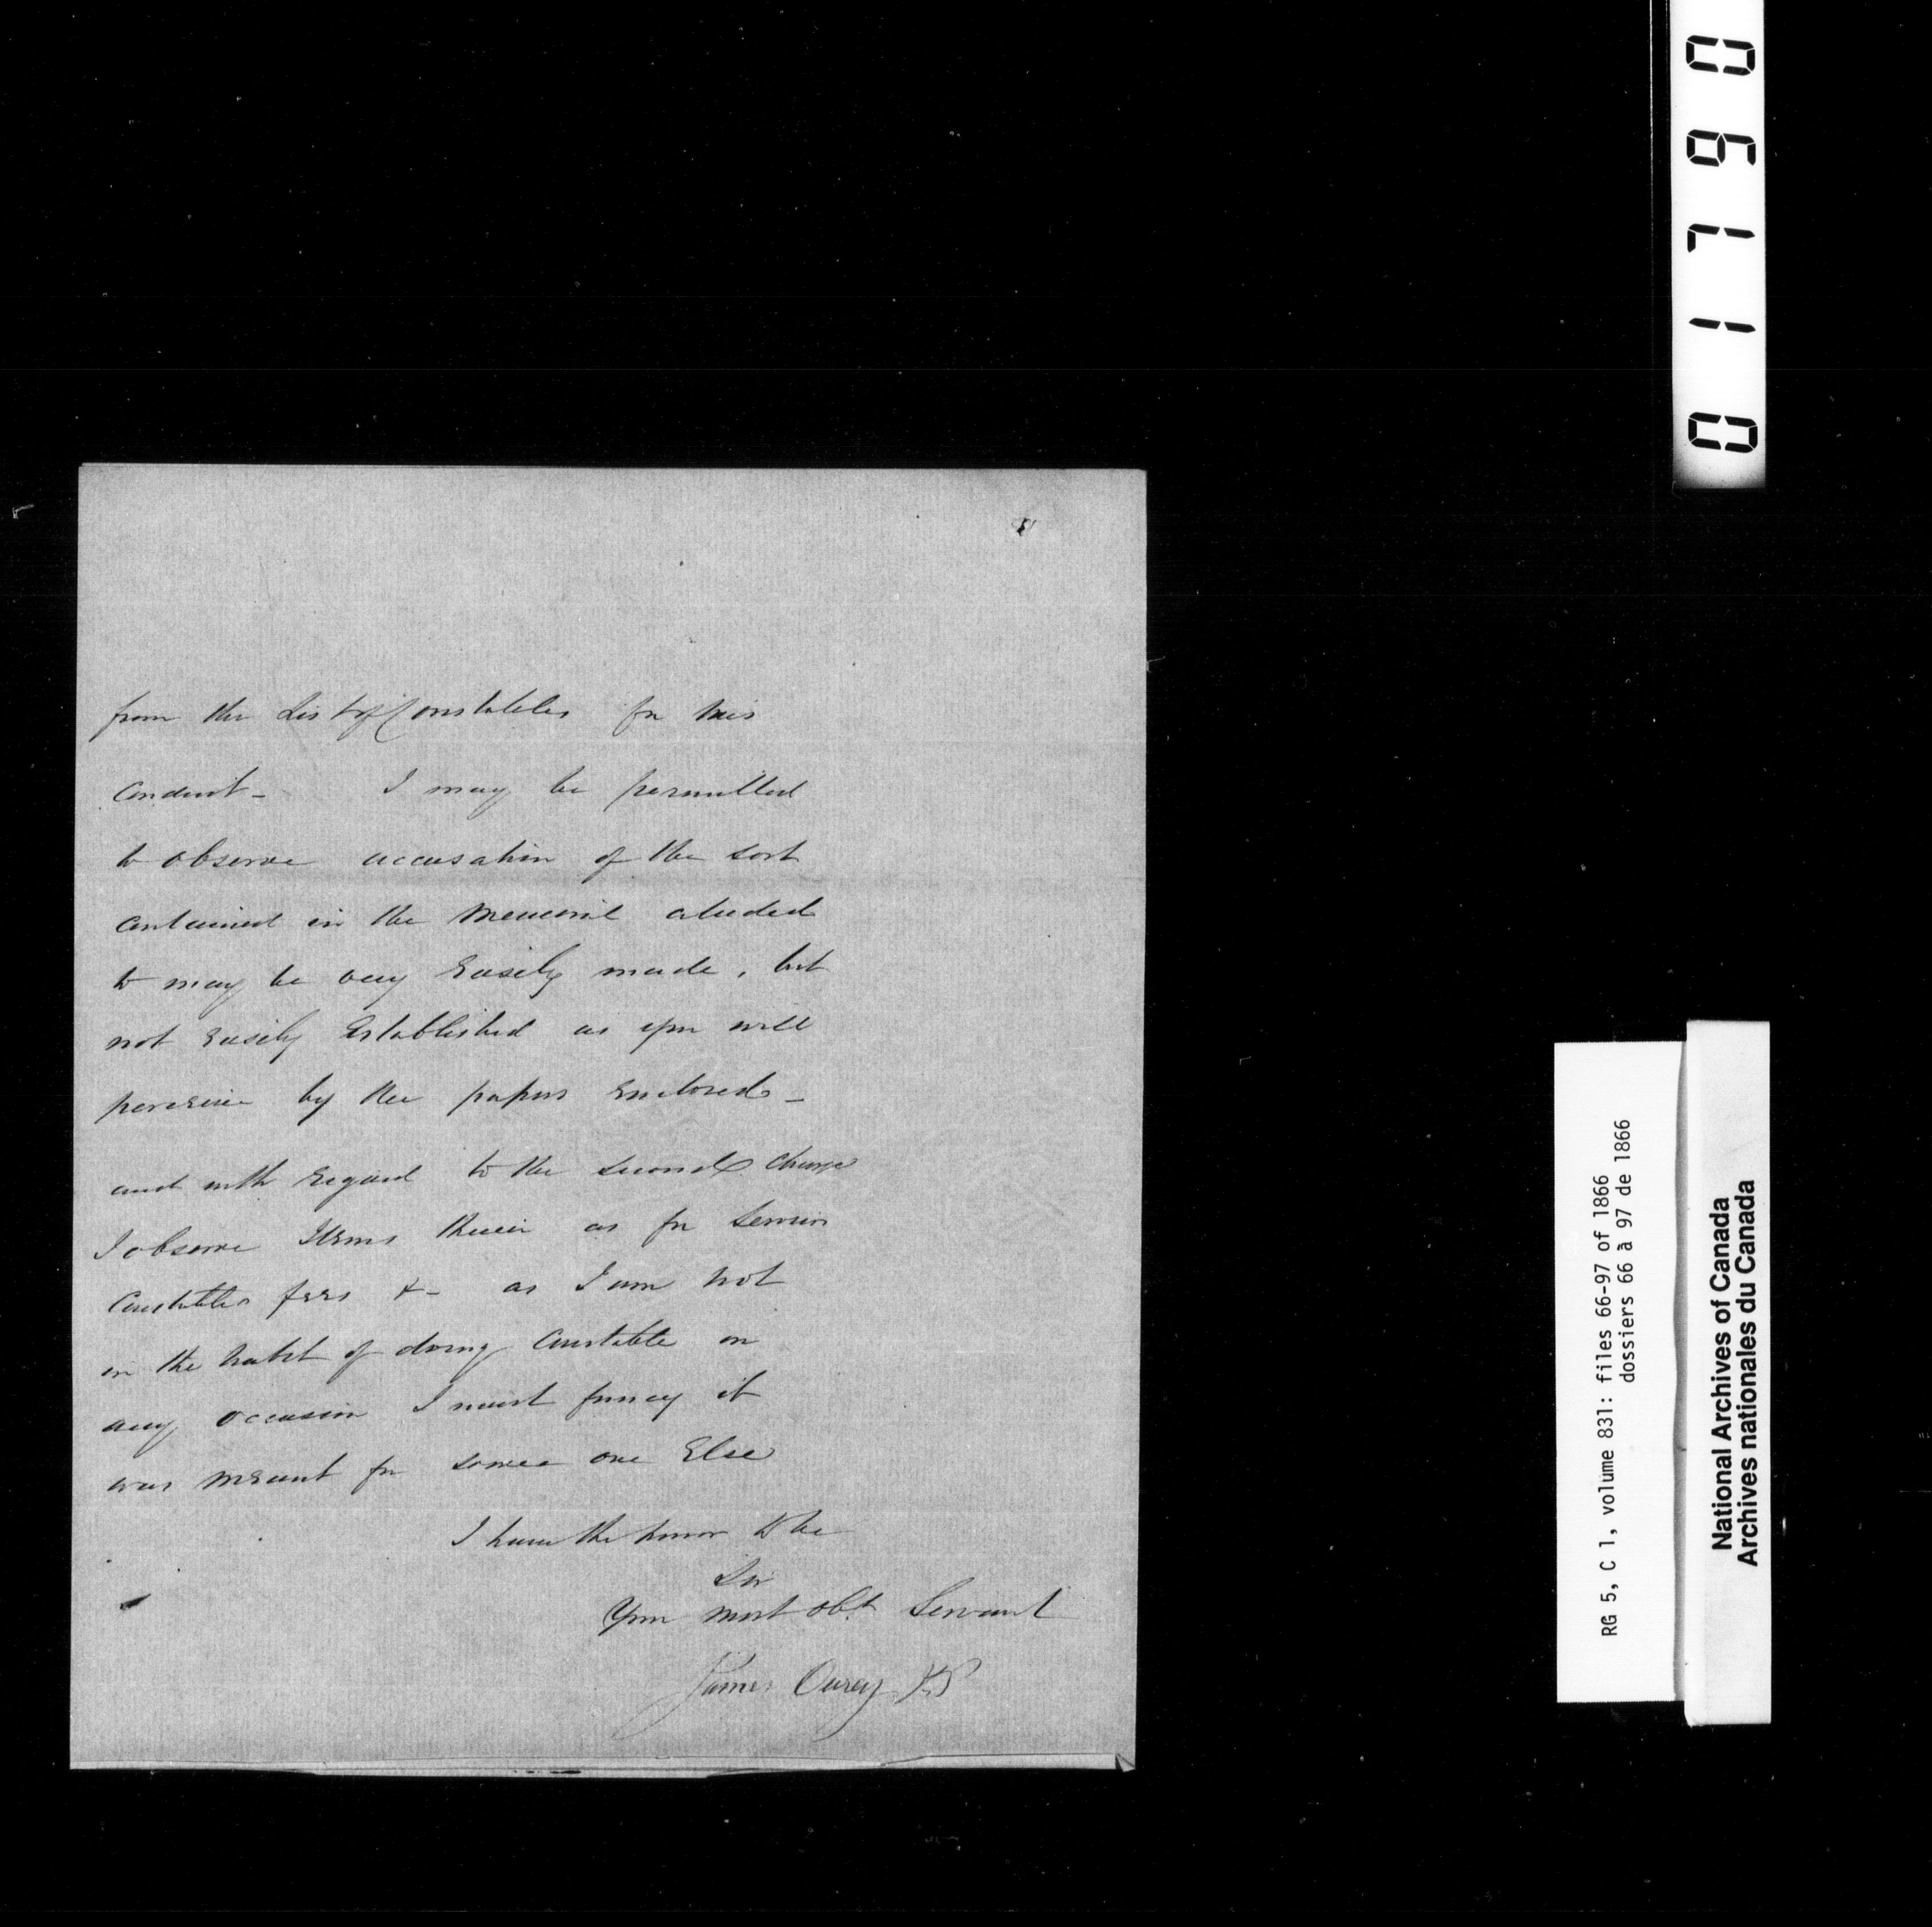 from the List of Constables for his
Conduct – I may be permitted
to observe accusation of the sort
contained in the Memorial aluded
to may be very Easily made, but
not Easily Established as you will
perceive by the papers Enclosed –
and with regard to the second Charge
I observe Items therein as for Service
Constables fees &– as I am not
in the habit of doing Constable on
any occasion I must fancy it
was meant for some one Else
I have the honor to be
Sir
Your most obt. Servant
James Carey JP
01790
RG 5, C 1, volume 831: files 66-97 of 1866
dossiers 66 à 97 de 1866
National Archives of Canada
Archives nationales du Canada